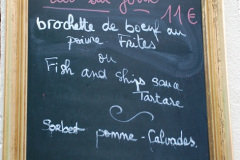 du jour 11€
brochette de boeuf au
poivre Frites
ou
Fish and ships sauce
Tartare
Sorbet pomme - Calvados.